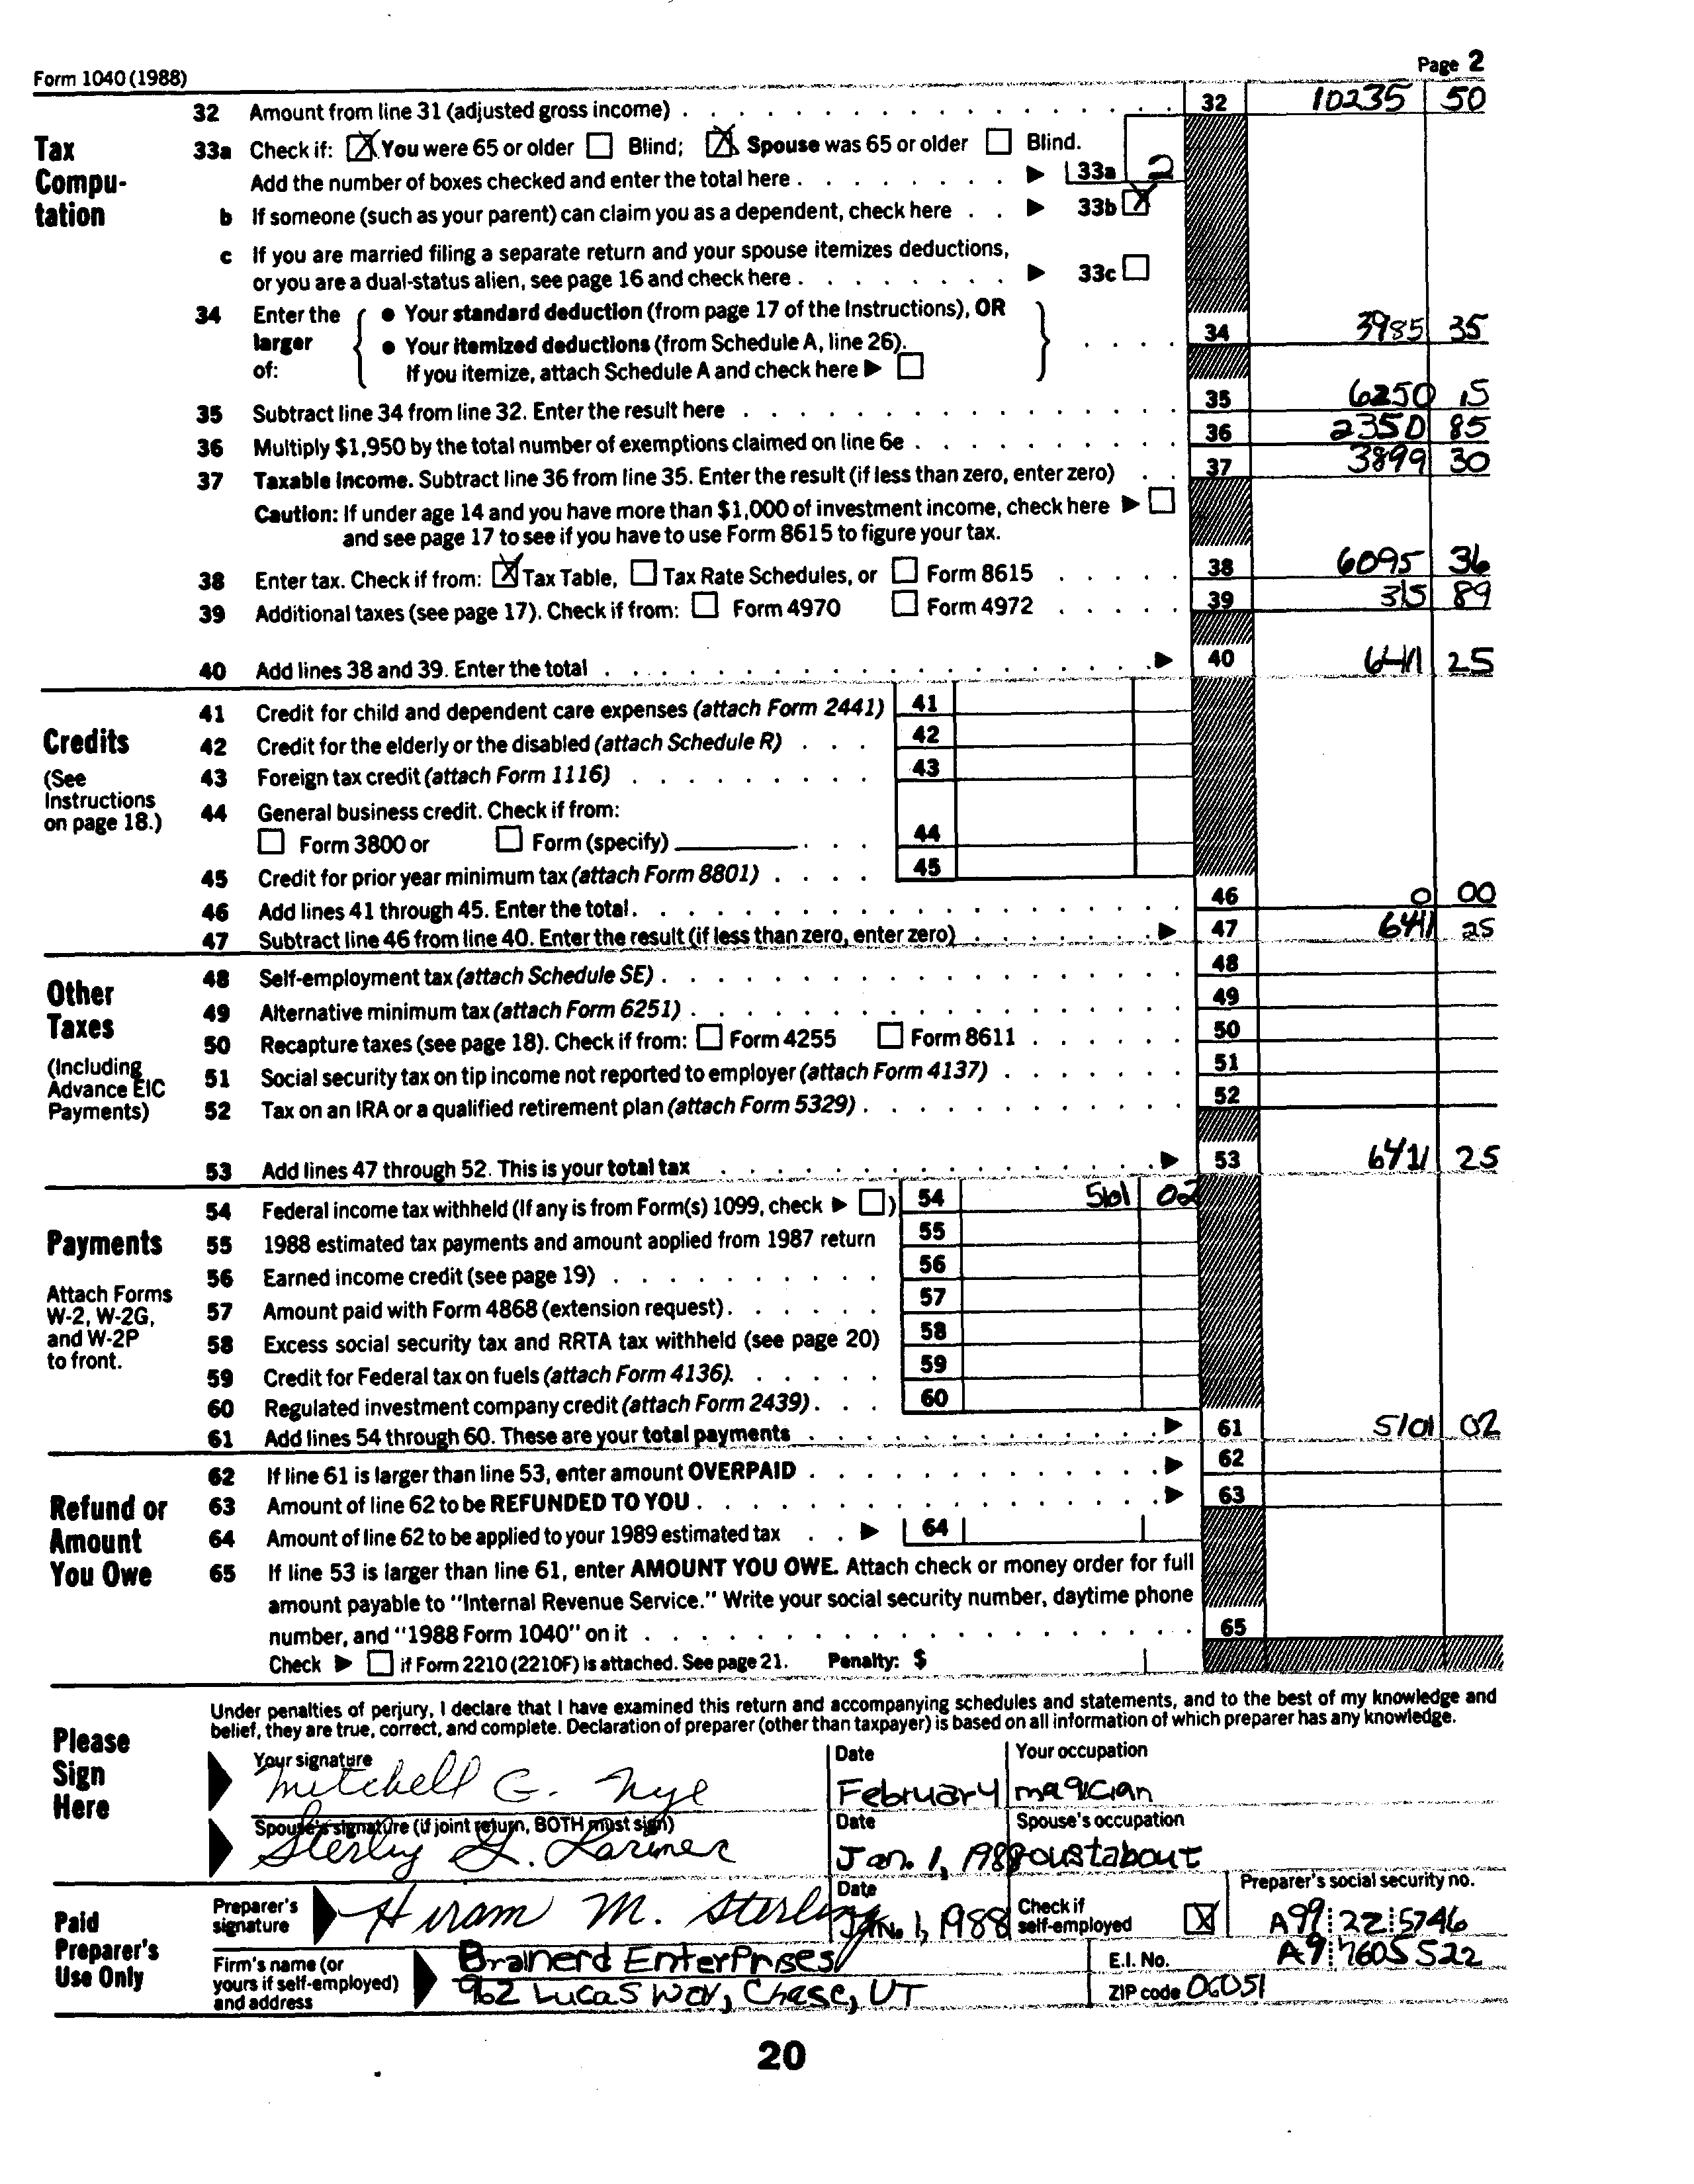 Form 1040 (1988) Page 2
32 Amount from line 31 (adjusted gross income) 32 10235 50
Tax Compu-tation
33a Check if: X You were 65 or older Blind; X Spouse was 65 or older Blind.
Add the number of boxes checked and enter the total here 33a 2
b If someone (such as your parent) can claim you as a dependent, check here 33b X
c If you are married filing a separate return and your spouse itemizes deductions,
or you are a dual-status alien, see page 16 and check here 33c
34 Enter the larger of:
● Your standard deduction (from page 17 of the Instructions), OR
● Your itemized deductions (from Schedule A, line 26). 34 3985 35
If you itemize, attach Schedule A and check here
35 Subtract line 34 from line 32. Enter the result here 35 6250 15
36 Multiply $1,950 by the total number of exemptions claimed on line 6e 36 2350 85
37 Taxable Income. Subtract line 36 from line 35. Enter the result (if less than zero, enter zero) 37 3899 30
Caution: If under age 14 and you have more than $1,000 of investment income, check here
and see page 17 to see if you have to use Form 8615 to figure your tax.
38 Enter tax. Check if from: X Tax Table, Tax Rate Schedules, or Form 8615 38 6095 36
39 Additional taxes (see page 17). Check if from: Form 4970 Form 4972 39 315 89
40 Add lines 38 and 39. Enter the total 40 6411 25
Credits
(See Instructions on page 18.)
41 Credit for child and dependent care expenses (attach Form 2441) 41
42 Credit for the elderly or the disabled (attach Schedule R) 42
43 Foreign tax credit (attach Form 1116) 43
44 General business credit. Check if from:
Form 3800 or Form (specify) 44
45 Credit for prior year minimum tax (attach Form 8801) 45
46 Add lines 41 through 45. Enter the total. 46 0 00
47 Subtract line 46 from line 40. Enter the result (if less than zero, enter zero) 47 6411 25
Other Taxes
(Including Advance EIC Payments)
48 Self-employment tax (attach Schedule SE) 48
49 Alternative minimum tax (attach Form 6251) 49
50 Recapture taxes (see page 18). Check if from: Form 4255 Form 8611 50
51 Social security tax on tip income not reported to employer (attach Form 4137) 51
52 Tax on an IRA or a qualified retirement plan (attach Form 5329) 52
53 Add lines 47 through 52. This is your total tax 53 6411 25
Payments
Attach Forms W-2, W-2G, and W-2P to front.
54 Federal income tax withheld (If any is from Form(s) 1099, check ) 54 5101 02
55 1988 estimated tax payments and amount applied from 1987 return 55
56 Earned income credit (see page 19) 56
57 Amount paid with Form 4868 (extension request) 57
58 Excess social security tax and RRTA tax withheld (see page 20) 58
59 Credit for Federal tax on fuels (attach Form 4136). 59
60 Regulated investment company credit (attach Form 2439) 60
61 Add lines 54 through 60. These are your total payments 61 5101 02
Refund or Amount You Owe
62 If line 61 is larger than line 53, enter amount OVERPAID 62
63 Amount of line 62 to be REFUNDED TO YOU 63
64 Amount of line 62 to be applied to your 1989 estimated tax 64
65 If line 53 is larger than line 61, enter AMOUNT YOU OWE. Attach check or money order for full
amount payable to "Internal Revenue Service." Write your social security number, daytime phone
number, and "1988 Form 1040" on it 65
Check if Form 2210 (2210F) is attached. See page 21. Penalty: $
Please Sign Here
Under penalties of perjury, I declare that I have examined this return and accompanying schedules and statements, and to the best of my knowledge and
belief, they are true, correct, and complete. Declaration of preparer (other than taxpayer) is based on all information of which preparer has any knowledge.
Your signature Date Your occupation
Mitchell G. Nye February magician
Spouse's signature (if joint return, BOTH must sign) Date Spouse's occupation
Sterling L. Larimer Jan. 1, 1988 roustabout
Paid Preparer's Use Only
Preparer's signature Hiram M. Sterling Date Jan. 1, 1988 Check if self-employed X Preparer's social security no. A99 22 5746
Firm's name (or yours if self-employed) and address Brainerd Enterprises E.I. No. A9 7605522
962 Lucas Way, Chase, UT ZIP code 06051
20